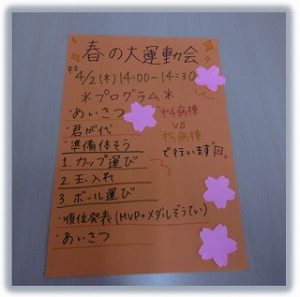 春の大運動会
4/2(木)14:00〜14:30
*プログラム*
・あいさつ
・君が代
・準備体そう
1.カップ運び
2.玉入れ
3.ボール運び
・順位発表(MVP→メダルぞうてい)
・あいさつ
病棟
VS
病棟
で行います